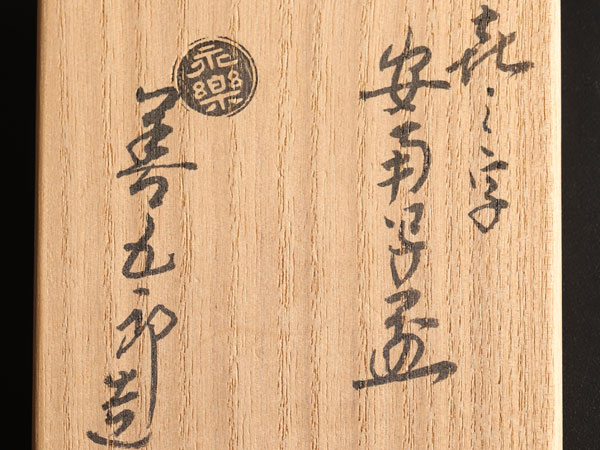 喜之字
安南写盃
永樂
善五郎造